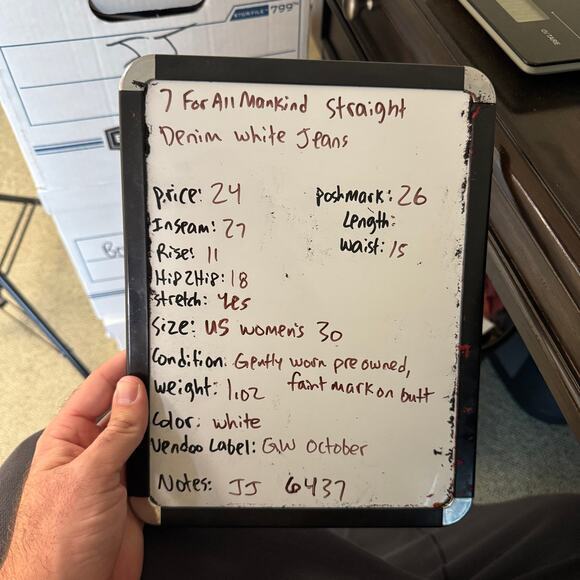 STOR/FILE™ 799
JJ
O/TARE
7 For All Mankind Straight
Denim white Jeans
price: 24
poshmark: 26
Inseam: 27
Length:
Rise: 11
waist: 15
Hip2Hip: 18
stretch: yes
Size: US women's 30
Condition: Gently worn pre owned,
faint mark on butt
weight: 1.02
Color: white
Vendoo Label: GW October
Notes: JJ 6437